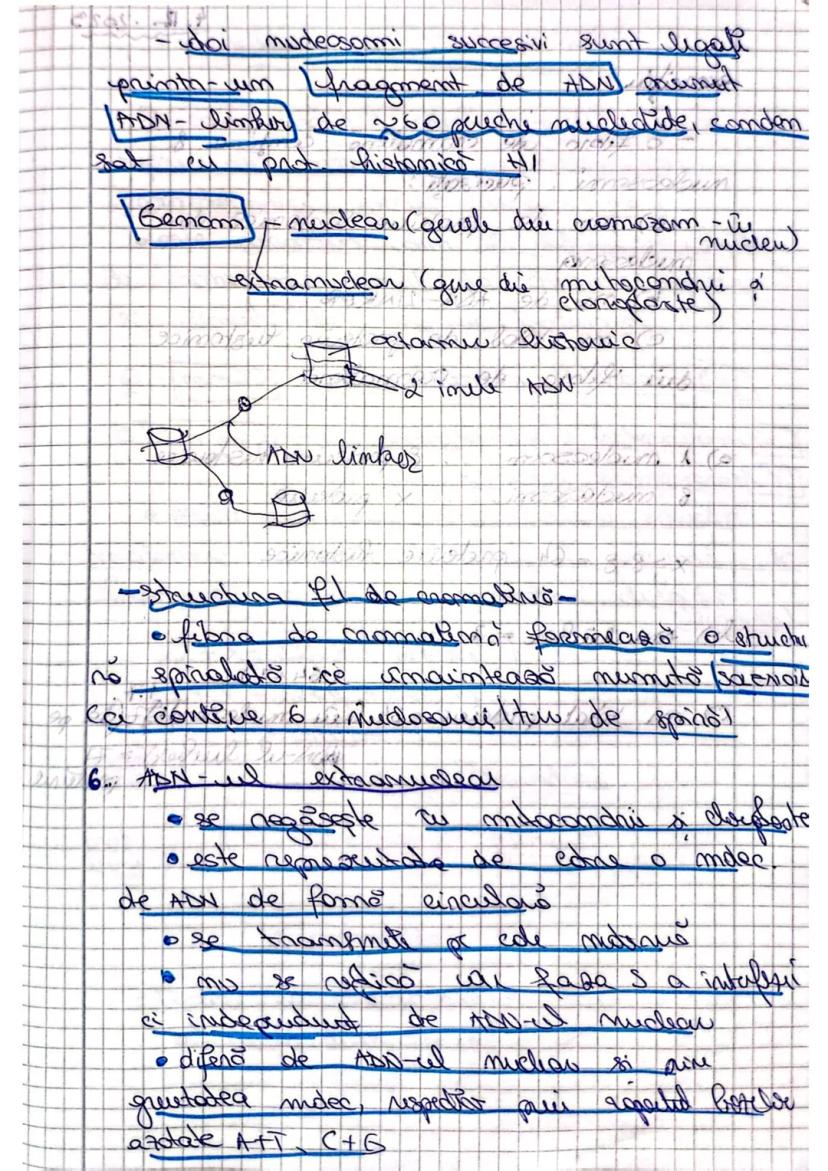 - doi nucleosomi succesivi sunt legați
printr-un fragment de ADN numit
ADN-linker de ~60 perechi nucleotide, conden
sat cu prot. histonică H1
Genom - nuclear (genele din cromozom - în
nucleu)
extranuclear (gene din mitocondrii și
cloroplaste)
octamer histonic
2 inele ADN
ADN linker
- structura fil de cromatină -
• fibra de cromatină formează o structu
ră spiralată ce înaintează numită
ce conține 6 nucleosomi/tur de spiră)
6. ADN-ul extranuclear
• se regăsește în mitocondrii și cloroplaste
• este reprezentat de către o molec.
de ADN de formă circulară
• se transmite pe cale maternă
• nu se replică în faza S a interfazei
ci independent de ADN-ul nuclear
• diferă de ADN-ul nuclear și prin
greutatea molec, respectiv prin raportul bazelor
azotate A+T, C+G